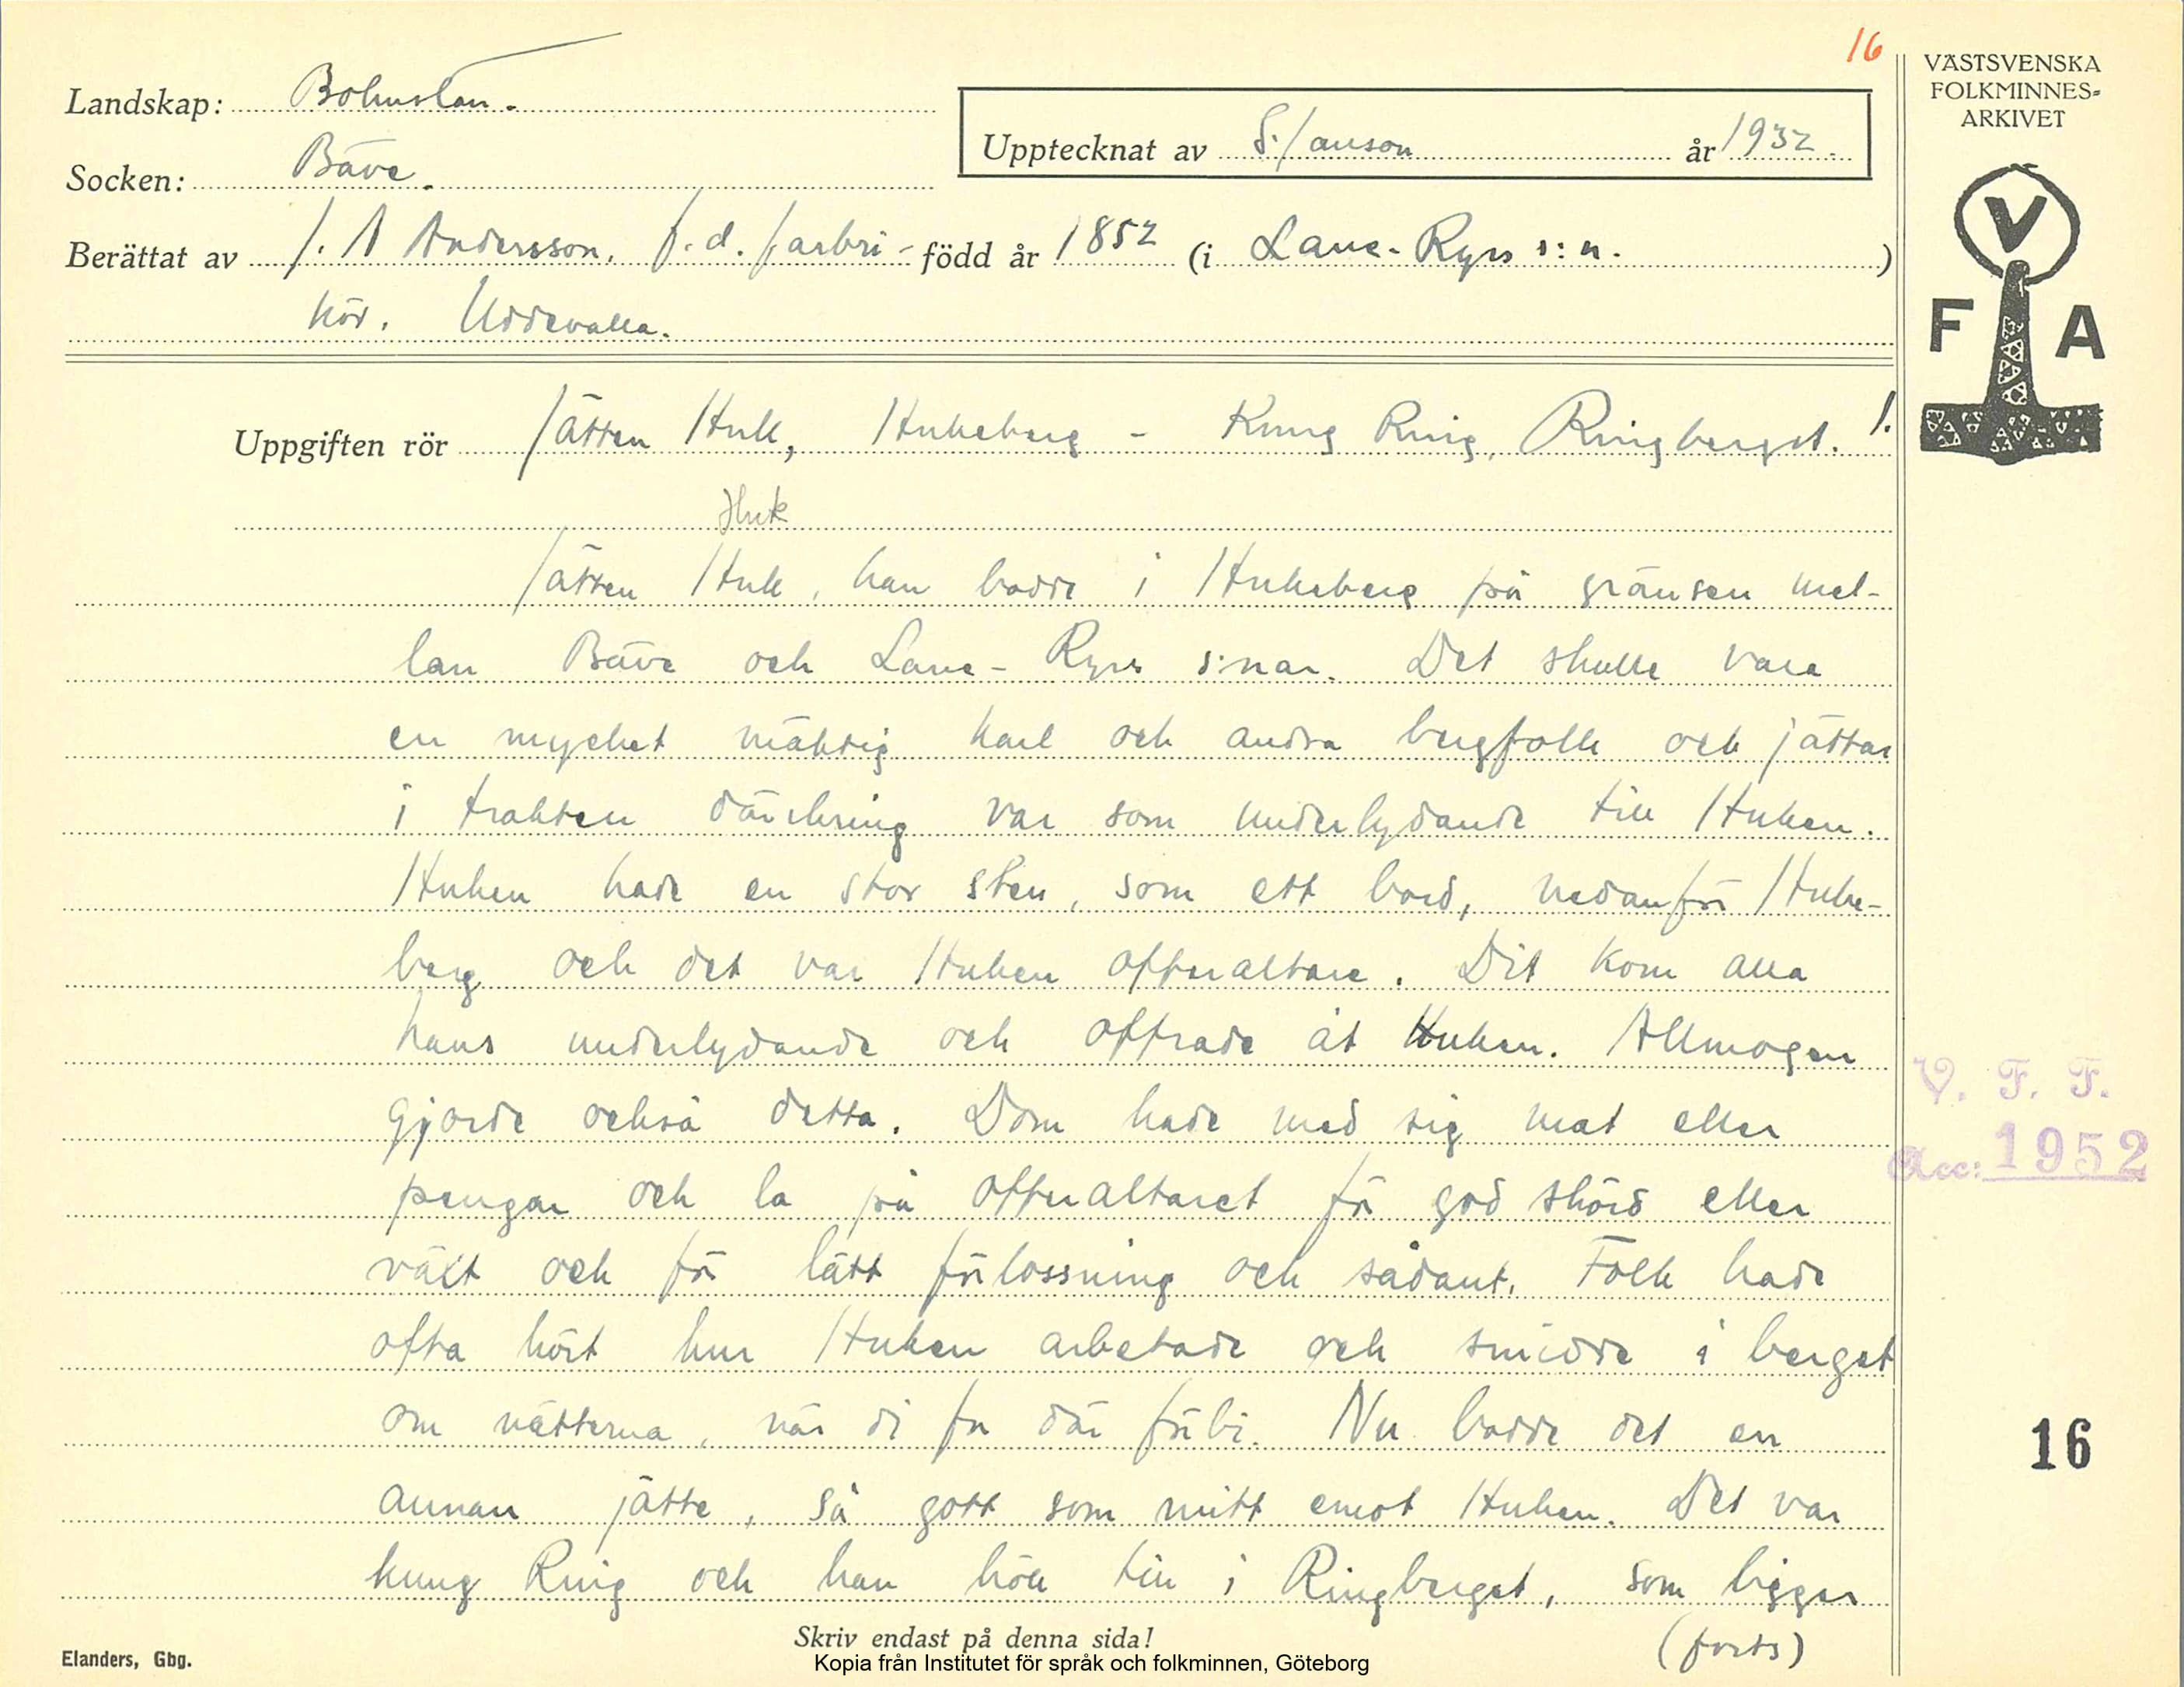 16
VÄSTSVENSKA
FOLKMINNES-
ARKIVET
Landskap: Bohuslän.
Upptecknat av S. Janson år 1932.
Socken: Bäve.
Berättat av J. A Andersson, f.d. farbri- född år 1852 (i Lane-Ryrs s:n.)
kör. Uddevalla.
V
F A
Uppgiften rör Jätten Huk, Hukeberg - Kung Ring, Ringberget. 1.
Huk
Jätten Huk, han bodde i Hukeberg på gränsen mel-
lan Bäve och Lane-Ryrs s:nar. Det skulle vara
en mycket mäktig karl och andra bergfolk och jättar
i trakten däromkring var som underlydande till Huken.
Huken hade en stor sten, som ett bord, nedanför Huke-
berg och det var Huken offeraltare. Dit kom alla
hans underlydande och offrade åt Huken. Allmogen
gjorde också detta. Dom hade med sig mat eller
pengar och la på offeraltaret för god skörd eller
växt och för lätt förlossning och sådant. Folk hade
ofta hört hur Huken arbetade och smidde i berget
om nätterna, när di for där förbi. Nu bodde det en
annan jätte, så gott som mitt emot Huken. Det var
kung Ring och han höll till i Ringberget, som ligger
(forts)
V. F. T.
Acc: 1952
16
Skriv endast på denna sida!
Elanders, Gbg.
Kopia från Institutet för språk och folkminnen, Göteborg